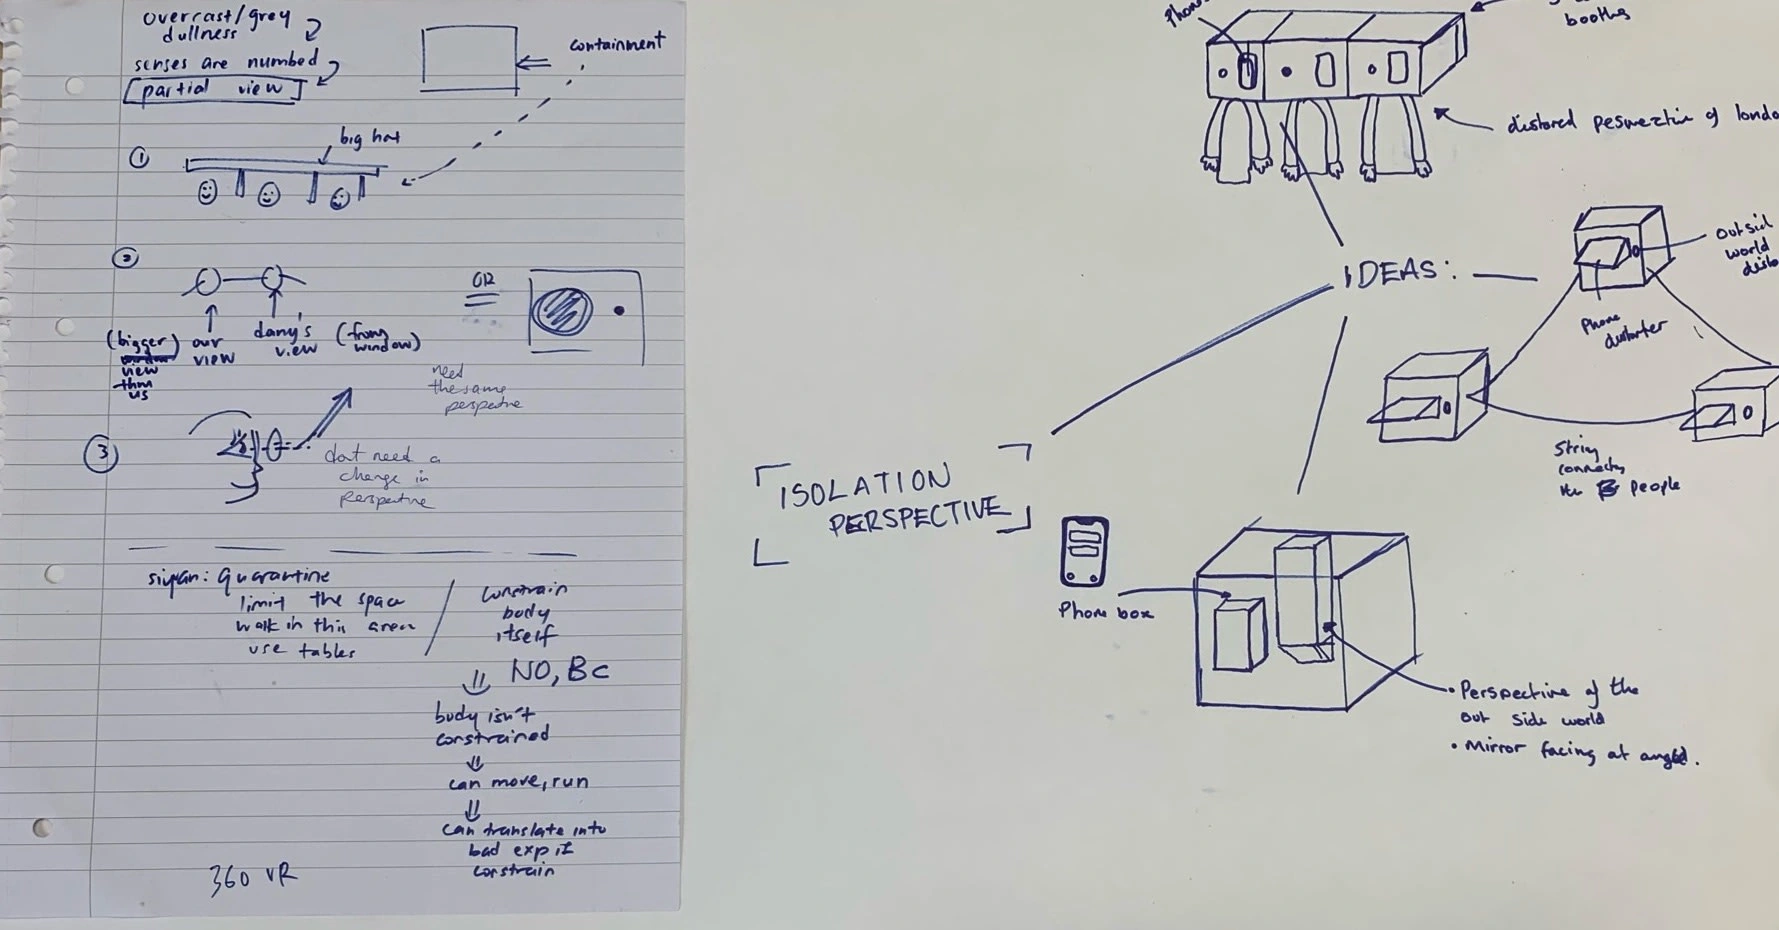 overcast/grey
dullness
senses are numbed
partial view
containment
①
big hat
②
(bigger)
view
thru
us
our
view
dany's
view
(from
window)
OR
need
the same
perspective
③
dont need a
change in
perspective
siyan: quarantine
limit the space
walk in this area
use tables
constrain
body
itself
NO, BC
body isn't
constrained
can move, run
can translate into
bad exp if
constrain
360 VR
ISOLATION
PERSPECTIVE
IDEAS:
Phone
booths
distored perspective of londo
outsid
world
disto
Phone
distorter
String
connects
the people
Phone box
• Perspective of the
out side world
• Mirror facing at angled.